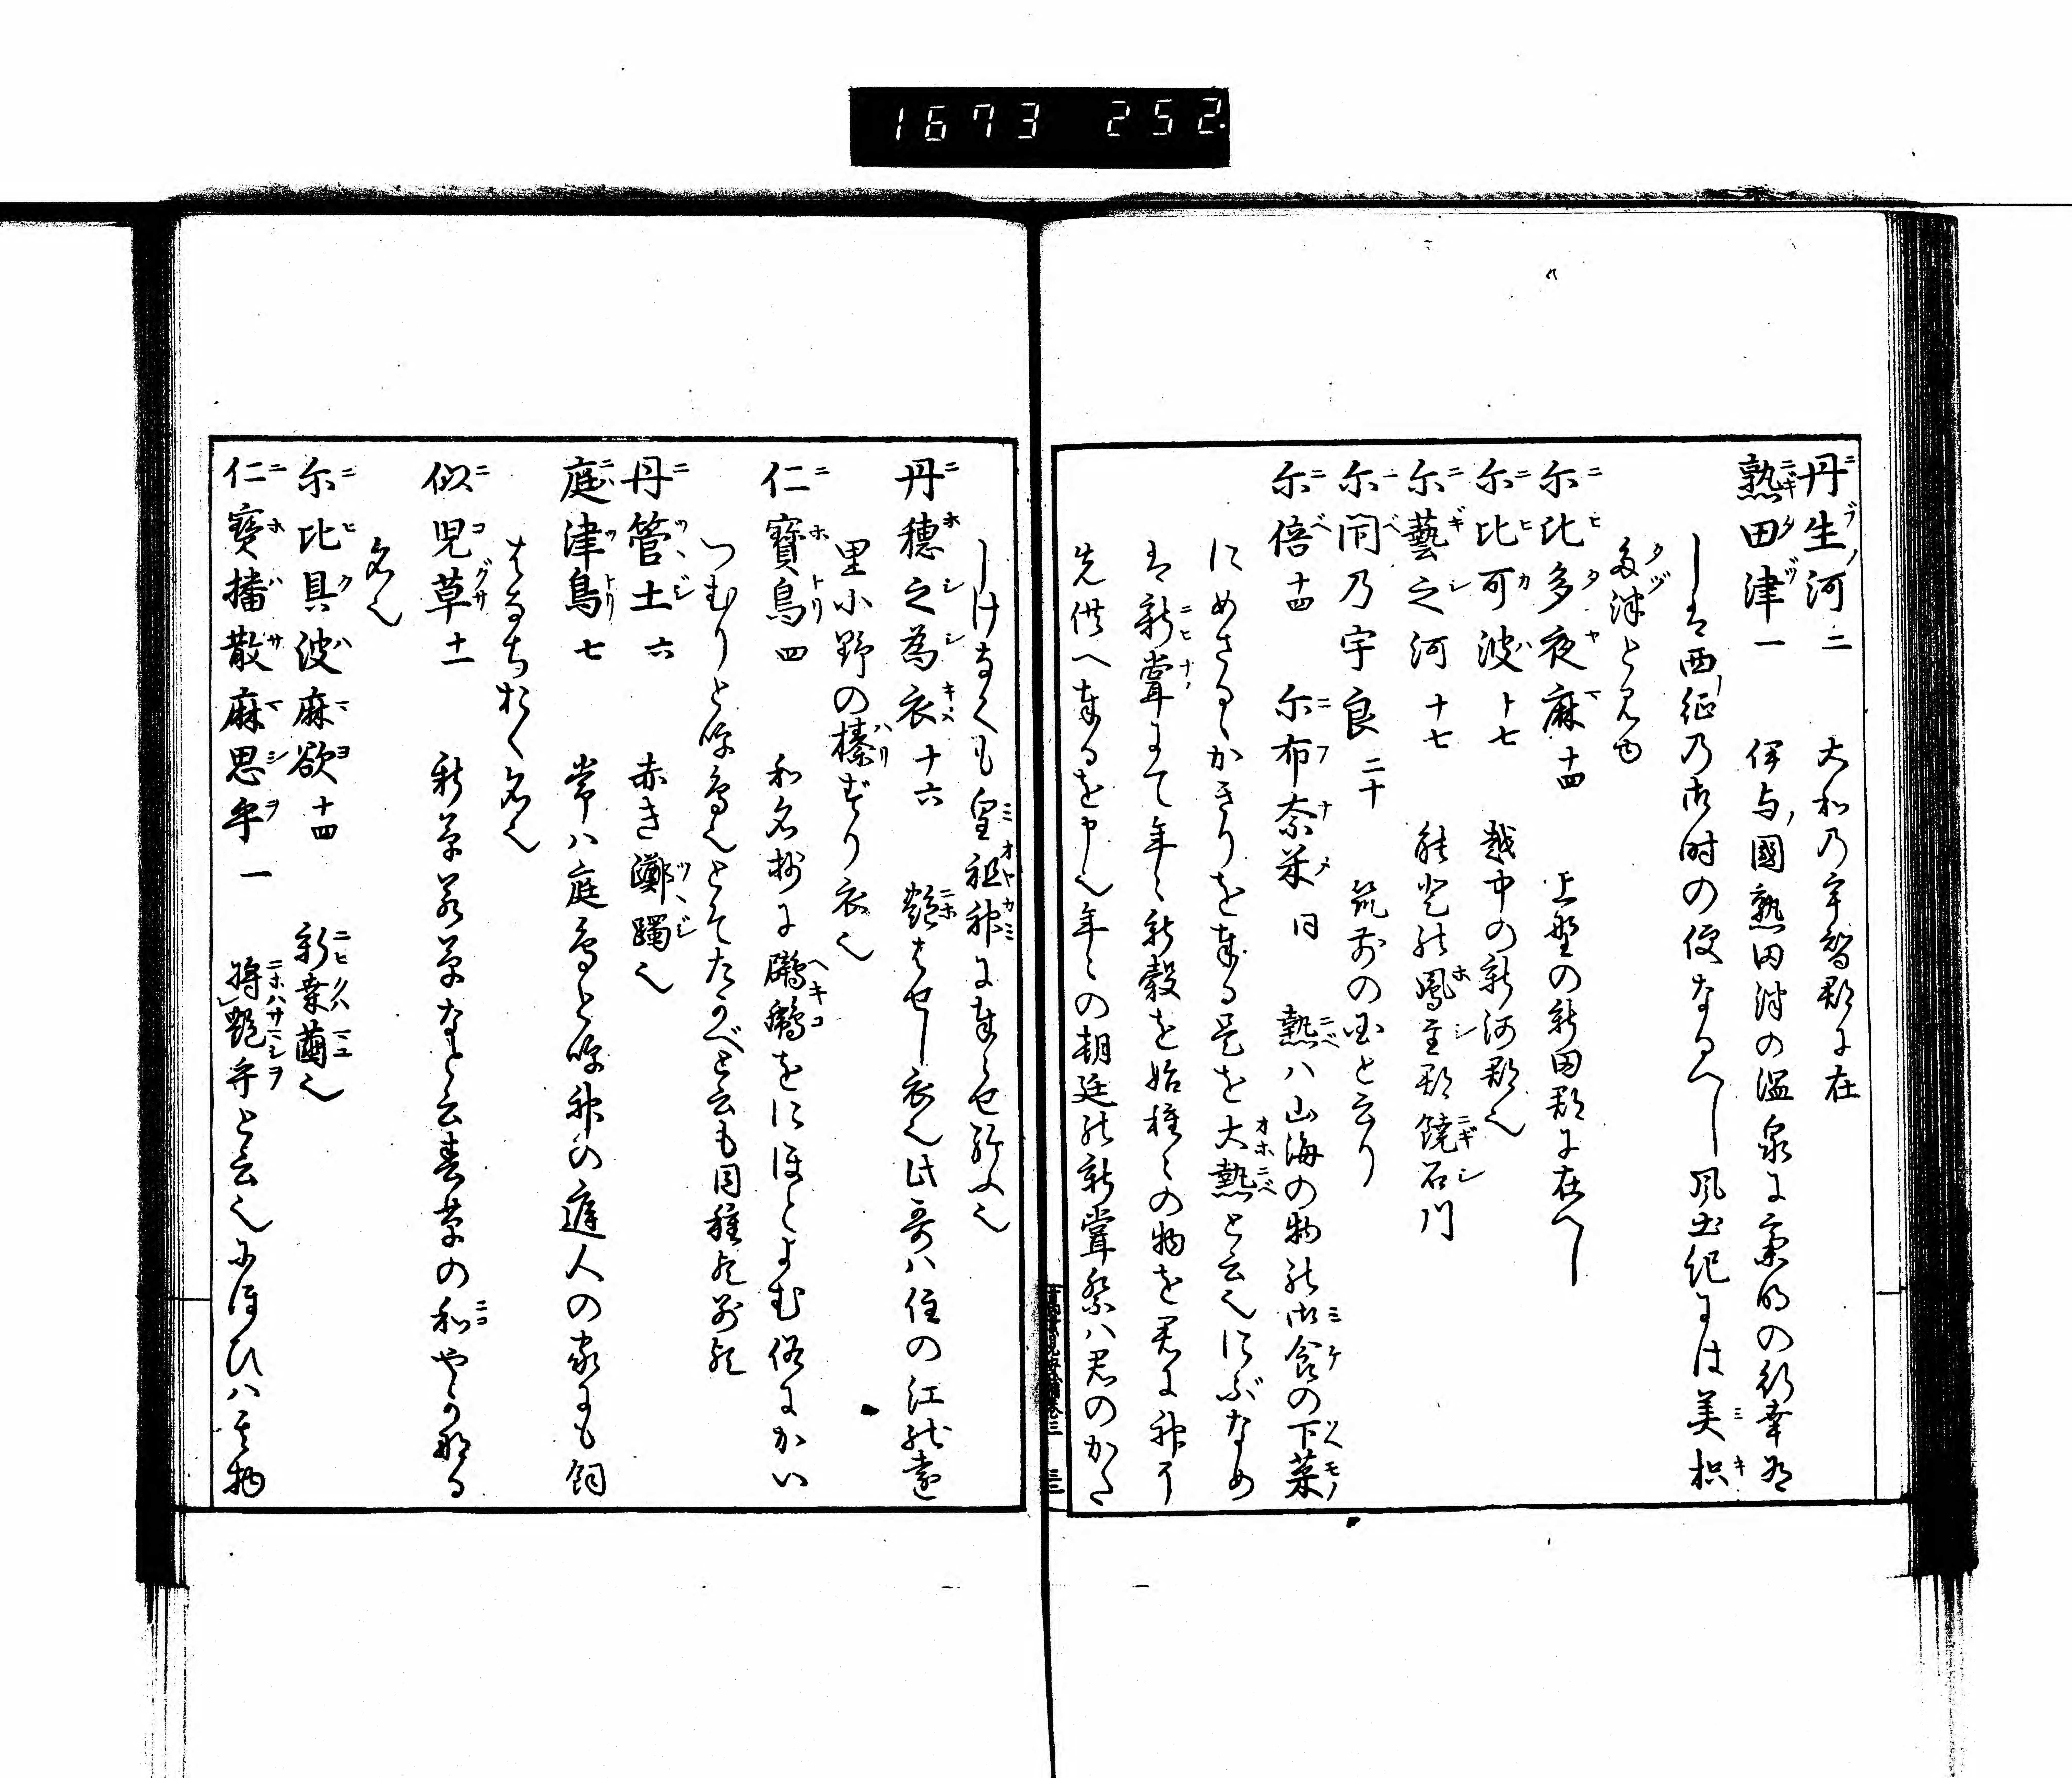 1673 252
丹生河二 大和乃宇智郡に在
熟田津一 伊与國熟田津の温泉に斉明の行幸有
しは西征乃御時の便なるへし風土記には美枳
多津と見ゆ
尓比多夜麻十四 上野の新田郡に在へし
尓比可波十七 越中の新河郡也
尓藝之河十七 能登能鳳至郡饒石川
尓閇乃宇良二十 筑前の国と云り
尓倍十四 尓布奈米同 熱ハ山海の物能御食の下菜
にめさるゝかきりを奉る是を大熱と云也にぶなめ
は新嘗にて年々新穀を始種々の物を君に神に
先供へ奉るを申也年々の朝廷能新嘗祭ハ君のかた
しけなくも皇祖神に奉らせ給ふ也
丹穂之為衣十六 艶はせし衣也此哥ハ住の江能遠
里小野の榛ずり衣也
仁寶鳥四 和名抄に鸊鷉をにほとよむ俗にかい
つむりと呼鳥也とそたかべと云も同種歟別歟
丹管土六 赤き躑躅也
庭津鳥七 常ハ庭鳥と呼神の庭人の家にも飼
はなちおく名也
似児草十一 新草若草なと云春草の和やかなる
名也
尓比具波麻欲十四 新桒繭也
仁寶播散麻思乎一 将艶乎と云也にほひハ其物